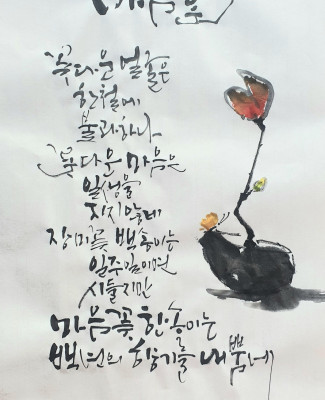 꽃다운 얼굴은
한철에
불과하나
꽃다운 마음은
일생을
지지않네
장미꽃 백송이는
일주일이면
시들지만
마음꽃 한송이는
백년의 향기를 내뿜네